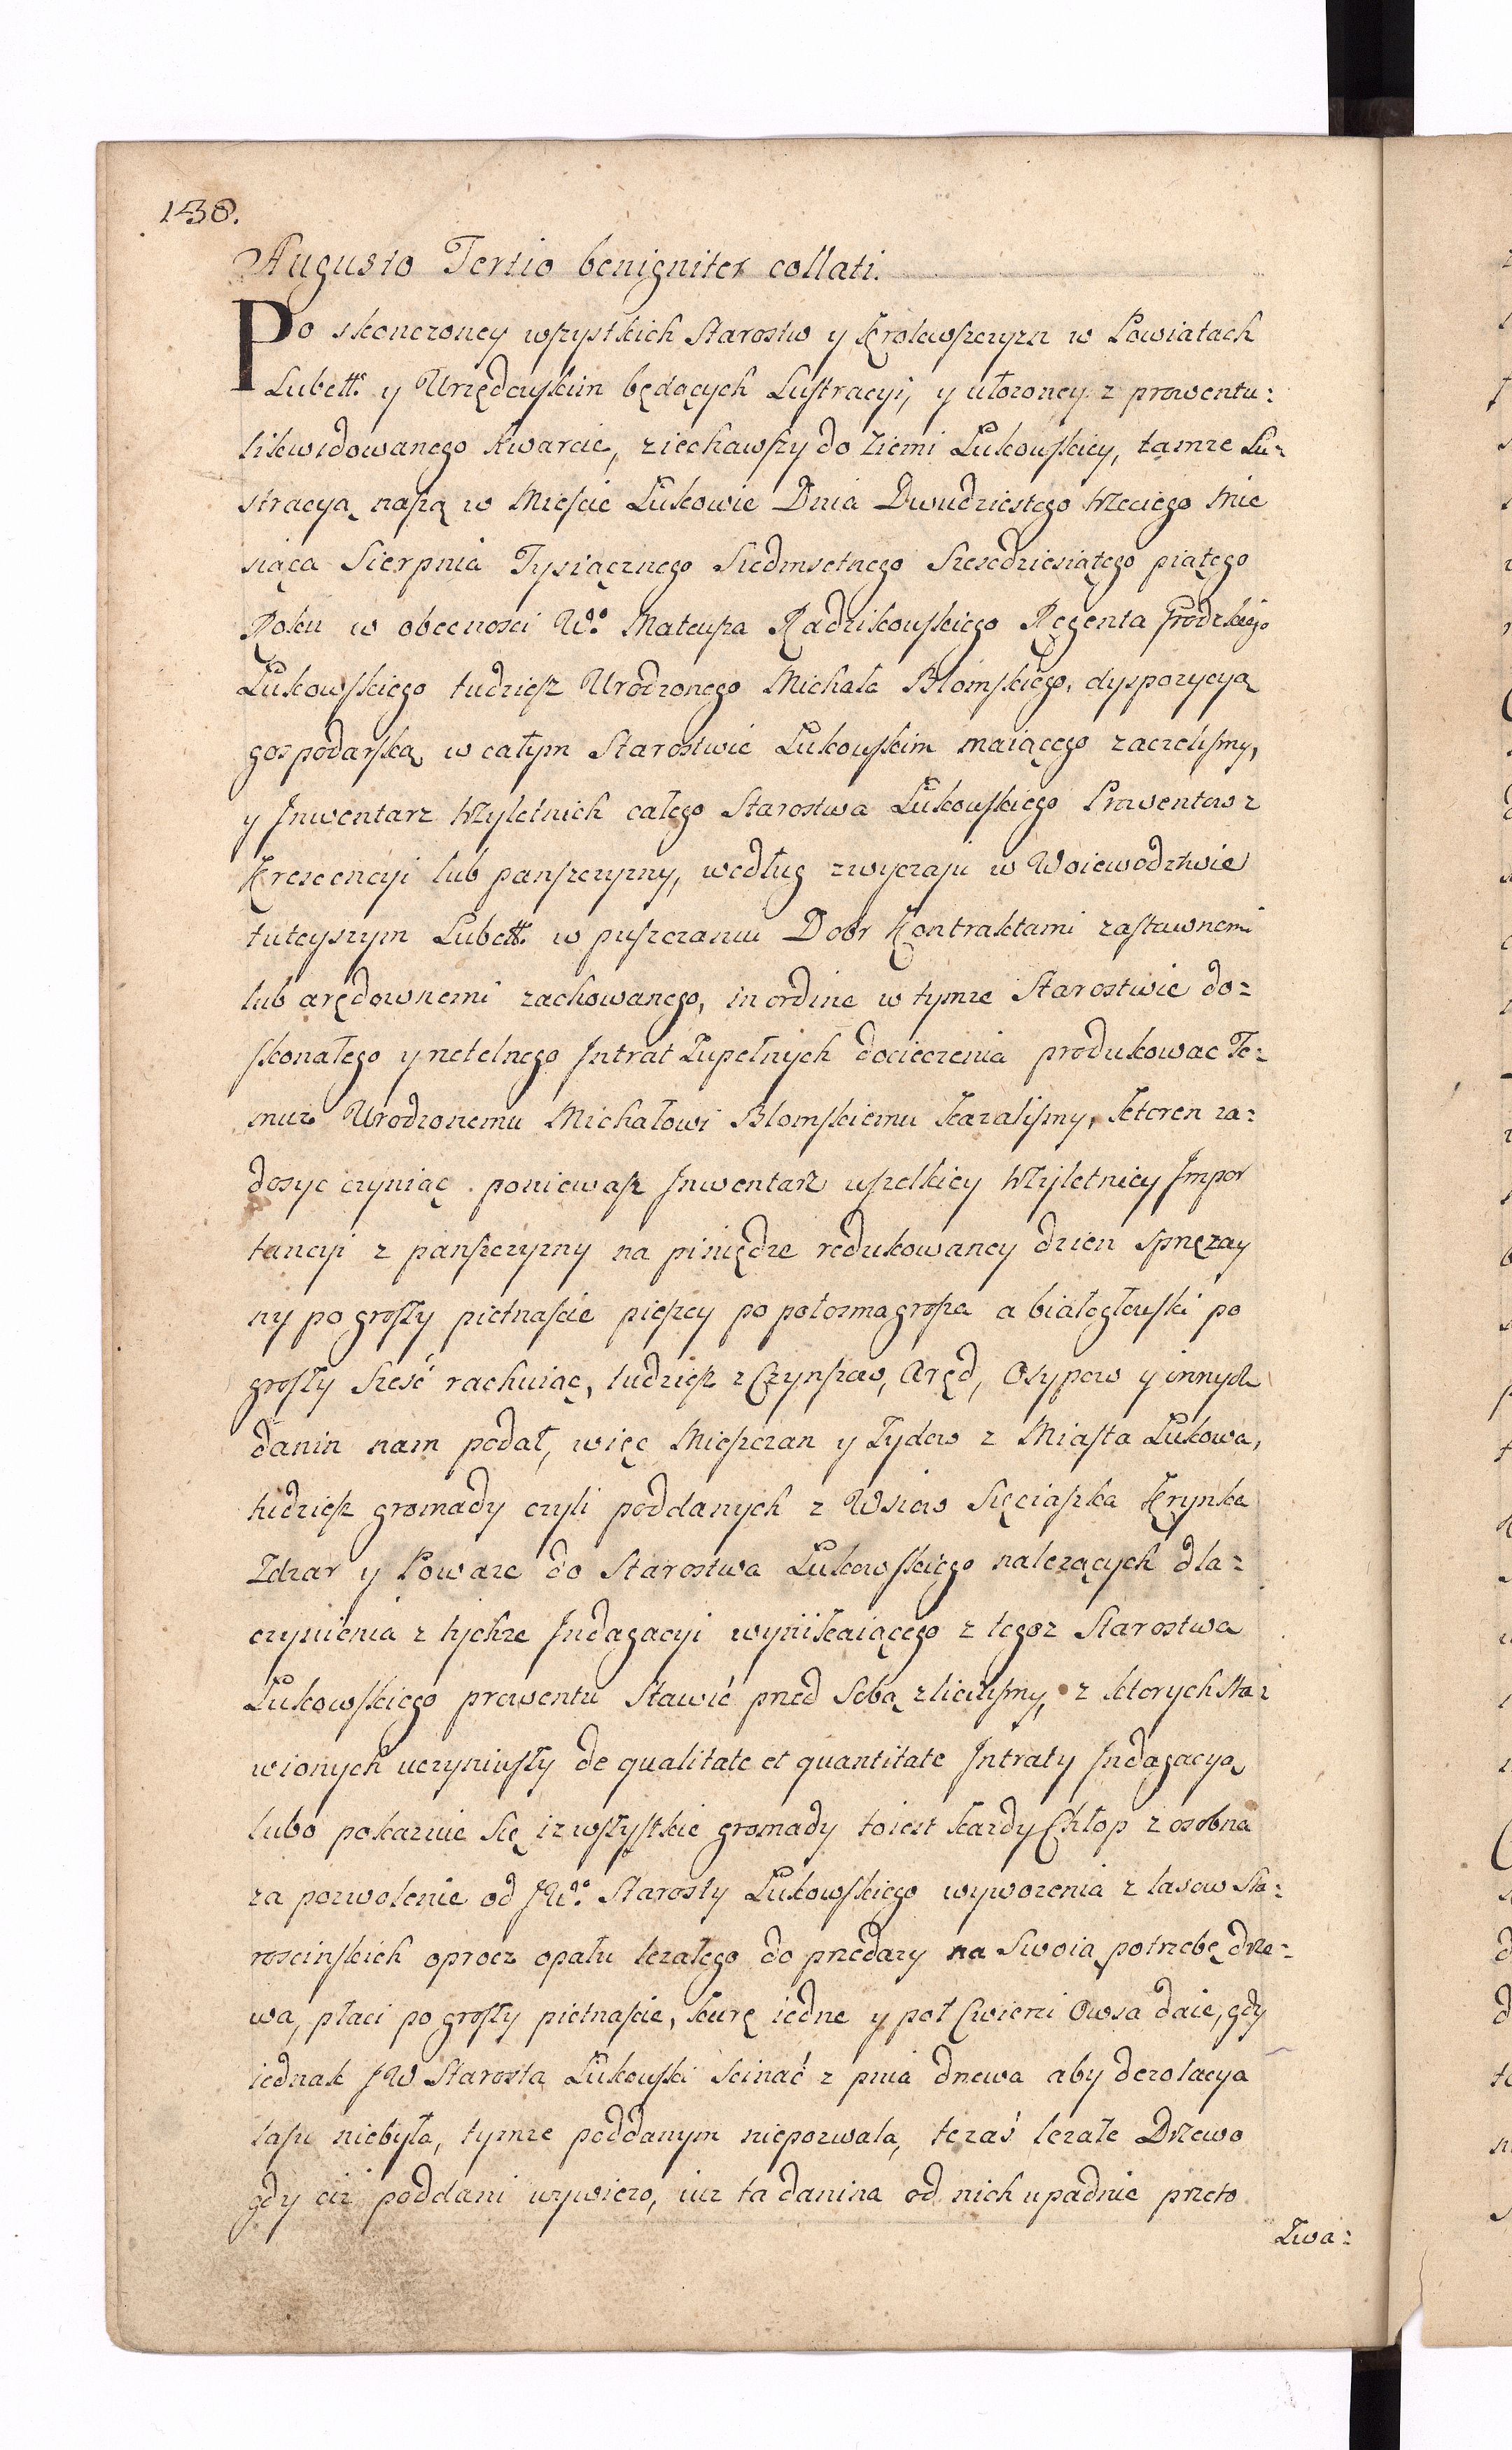 138.
Augusto Tertio benigniter collati.
Po skonczoney wszystkich Starostw y Krolewszczyzn w Powiatach
Lubell: y Urzędowskim będących Lustracyi, y ułozoney z prowentu:
likwidowanego kwarcie, ziechawszy do Ziemi Łukowskiey, tamze Lu:
stracyą naszą w Miescie Łukowie Dnia Dwudziestego trzeciego Mie
siąca Sierpnia Tysiącznego Siedmsetnego Szescdziesiątego piątego
Roku w obecnosci Wo. Mateusza Radzikowskiego Regenta Grodzkiego
Łukowskiego tudziesz Urodzonego Michała Blomskiego, dyspozycyą
gospodarską w całym Starostwie Łukowskim maiącego zaczelismy,
y Inwentarz trzyletnich całego Starostwa Łukowskiego Prowentow z
Krescencyi lub panszczyzny, według zwyczaju w Woiewodztwie
tuteyszym Lubell. w puszczaniu Dobr Kontraktami zastawnemi
lub arędownemi zachowanego, in ordine w tymze Starostwie do:
skonałego y rzetelnego Intrat Zupełnych docieczenia produkowac Te:
muz Urodzonemu Michałowi Blomskiemu kazalismy, ktoren za:
dosyc czyniąc poniewasz Inwentarz wszelkiey trzyletniey Impor
tancyi z panszczyzny na piniędze redukowaney dzien sprzęzay
ny po groszy pietnascie pieszey po połosma grosza a białogłowski po
groszy szesć rachuiąc, tudziesz z Czynszow, Aręd, Osypow y innych
danin nam podał, więc Mieszczan y Zydow z Miasta Łukowa,
tudziesz gromady czyli poddanych z Wsiow Sięciaszka Krynka
Zdzar y Powaze do Starostwa Łukowskiego nalezących dla:
czynienia z tychze Indagacyi wynikaiącego z tegoz Starostwa
Łukowskiego prowentu Stawić przed Sobą zlicilismy, z ktorych sta:
wionych uczyniwszy de qualitate et quantitate Intraty Indagacyą
lubo pokazuie się iz wszystkie gromady toiest kazdy Chłop z osobna
za pozwolenie od JWo. Starosty Łukowskiego wywozenia z lasow Sta:
roscinskich oprocz opału lezałego do przedazy na Swoią potrzebę drze:
wa, płaci po groszy pietnascie, kurę iedne y poł cwierci Owsa daie, gdy
iednak JW Starosta Łukowski scinać z pnia drzewa aby dezolacya
lasu niebyła, tymze poddanym niepozwala, teraś lezałe Drzewo
gdy ciz poddani wywiezo, iuz ta danina od nich upadnie przeto
Zwa: